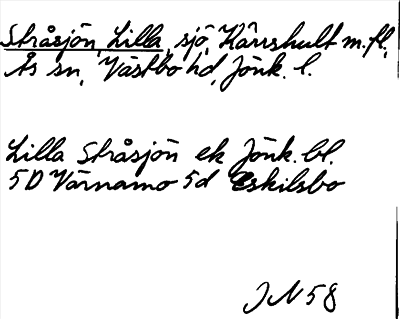 Stråsjön, Lilla, sjö, Kärrshult m.fl,
Ås sn, Västbo hd, Jönk. l.
Lilla Stråsjön ek Jönk. bl.
5D Värnamo 5d Eskilsbo
J N 58